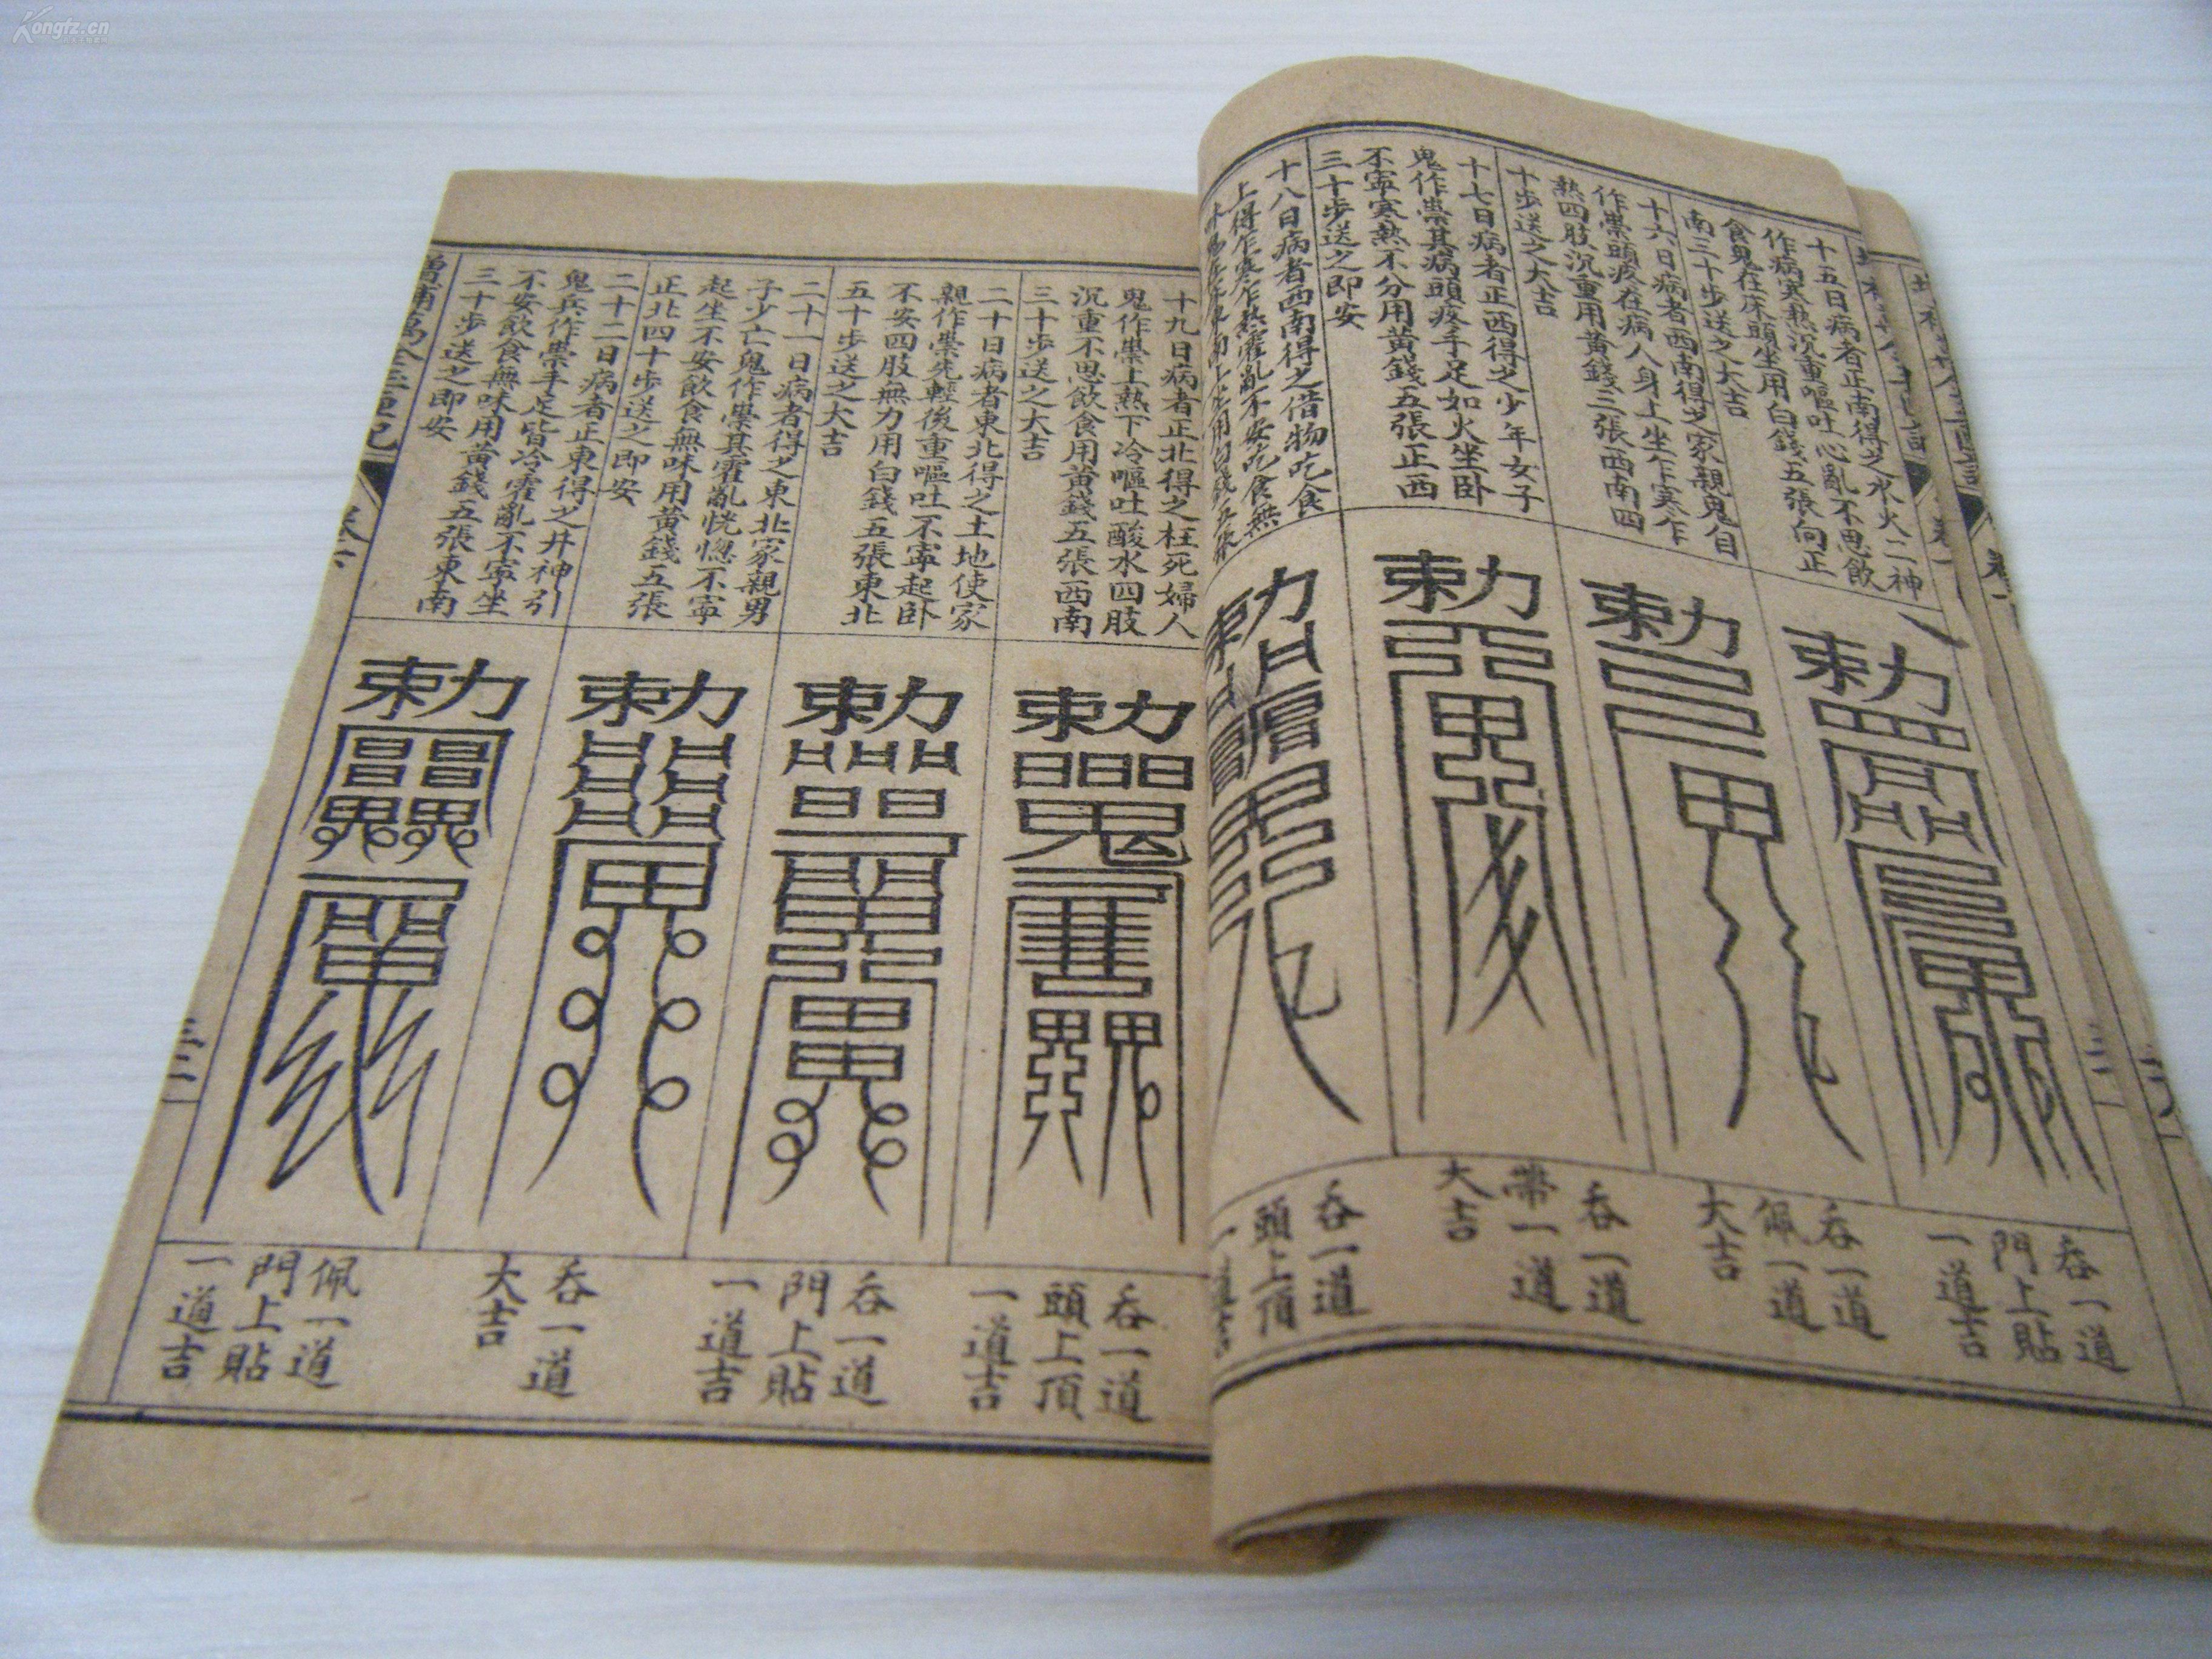 Kongfz.cn
十五日病者正南得之水火二神
作病寒熱沉重嘔吐心亂不思飲
食鬼在床頭坐用白錢五張向正
南三十步送之大吉
十六日病者西南得之家親鬼自
作祟頭疼在病人身上坐乍寒乍
熱四肢沉重用黃錢三張西南四
十步送之大吉
十七日病者正西得之少年女子
鬼作祟其病頭疼手足如火坐卧
不寧寒熱不分用黃錢五張正西
三十步送之即安
十八日病者西南得之借物吃食
上得乍寒乍熱霍亂不安吃食無
敕
吞一道
門上貼
一道吉
敕
吞一道
佩一道
大吉
敕
吞一道
帶一道
大吉
敕
吞一道
頭上頂
一道吉
十九日病者正北得之枉死婦人
鬼作祟上熱下冷嘔吐酸水四肢
沉重不思飲食用黃錢五張西南
三十步送之大吉
二十日病者東北得之土地使家
親作祟先輕後重嘔吐不寧起卧
不安四肢無力用白錢五張東北
五十步送之大吉
二十一日病者得之東北家親男
子少亡鬼作祟其霍亂恍惚不寧
起坐不安飲食無味用黃錢五張
正北四十步送之即安
二十二日病者正東得之井神引
鬼兵作祟手足皆冷霍亂不寧坐
不安飲食無味用黃錢五張東南
三十步送之即安
勅
吞一道
頭上頂
一道吉
勅
吞一道
門上貼
一道吉
勅
吞一道
大吉
勅
佩一道
門上貼
一道吉